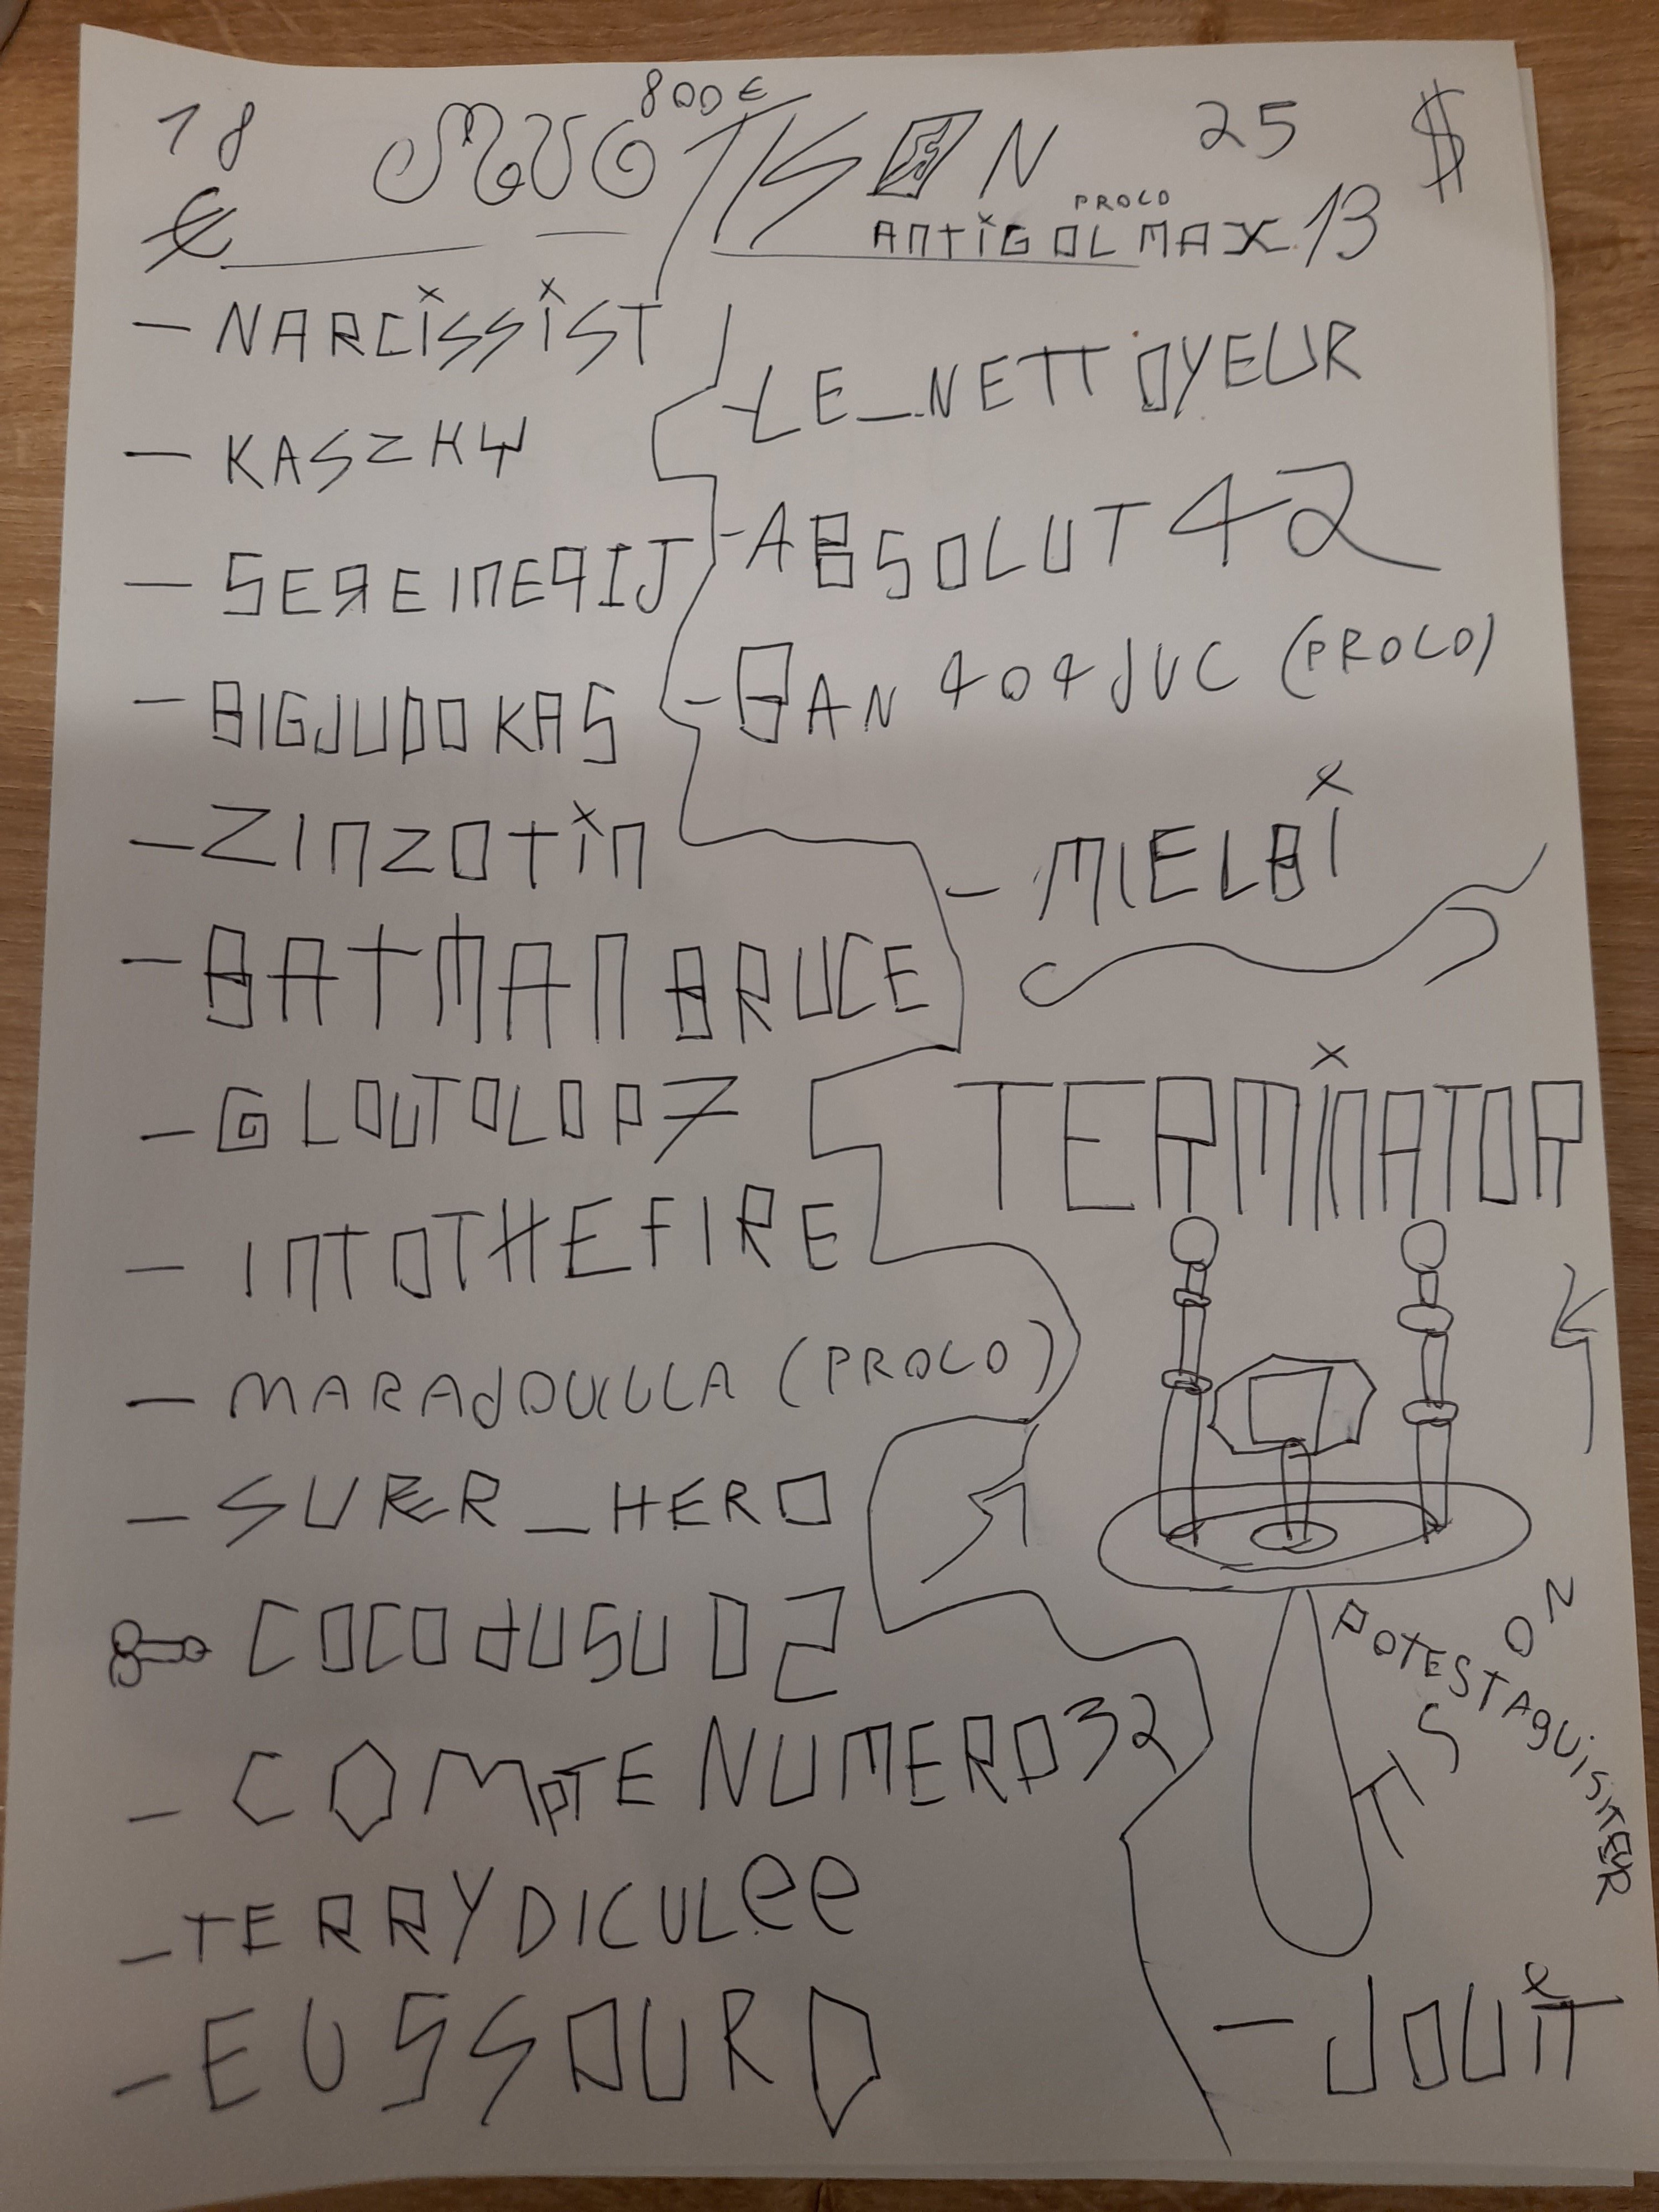 800€
18 25 $
€
PROLO
ANTiGOLMAX 13
- NARCiSSiST
- KASZHY
- BIGJUDOKAS
- ZINZOTiN
- BATMANBRUCE
- GLOUTOLOP7
- INTOTHEFIRE
- MARADOUILLA (PROLO)
- SUPER_HERO
COCODUSUD2
- COMPTENUMERO32
- TERRYDICULee
- EUSSOURD
- LE_NETTOYEUR
- ABSOLUT42
- BAN404JVC (PROLO)
- MIELBi
TERMiNATOR
POTESTAQUiSITEUR
- JOUiT